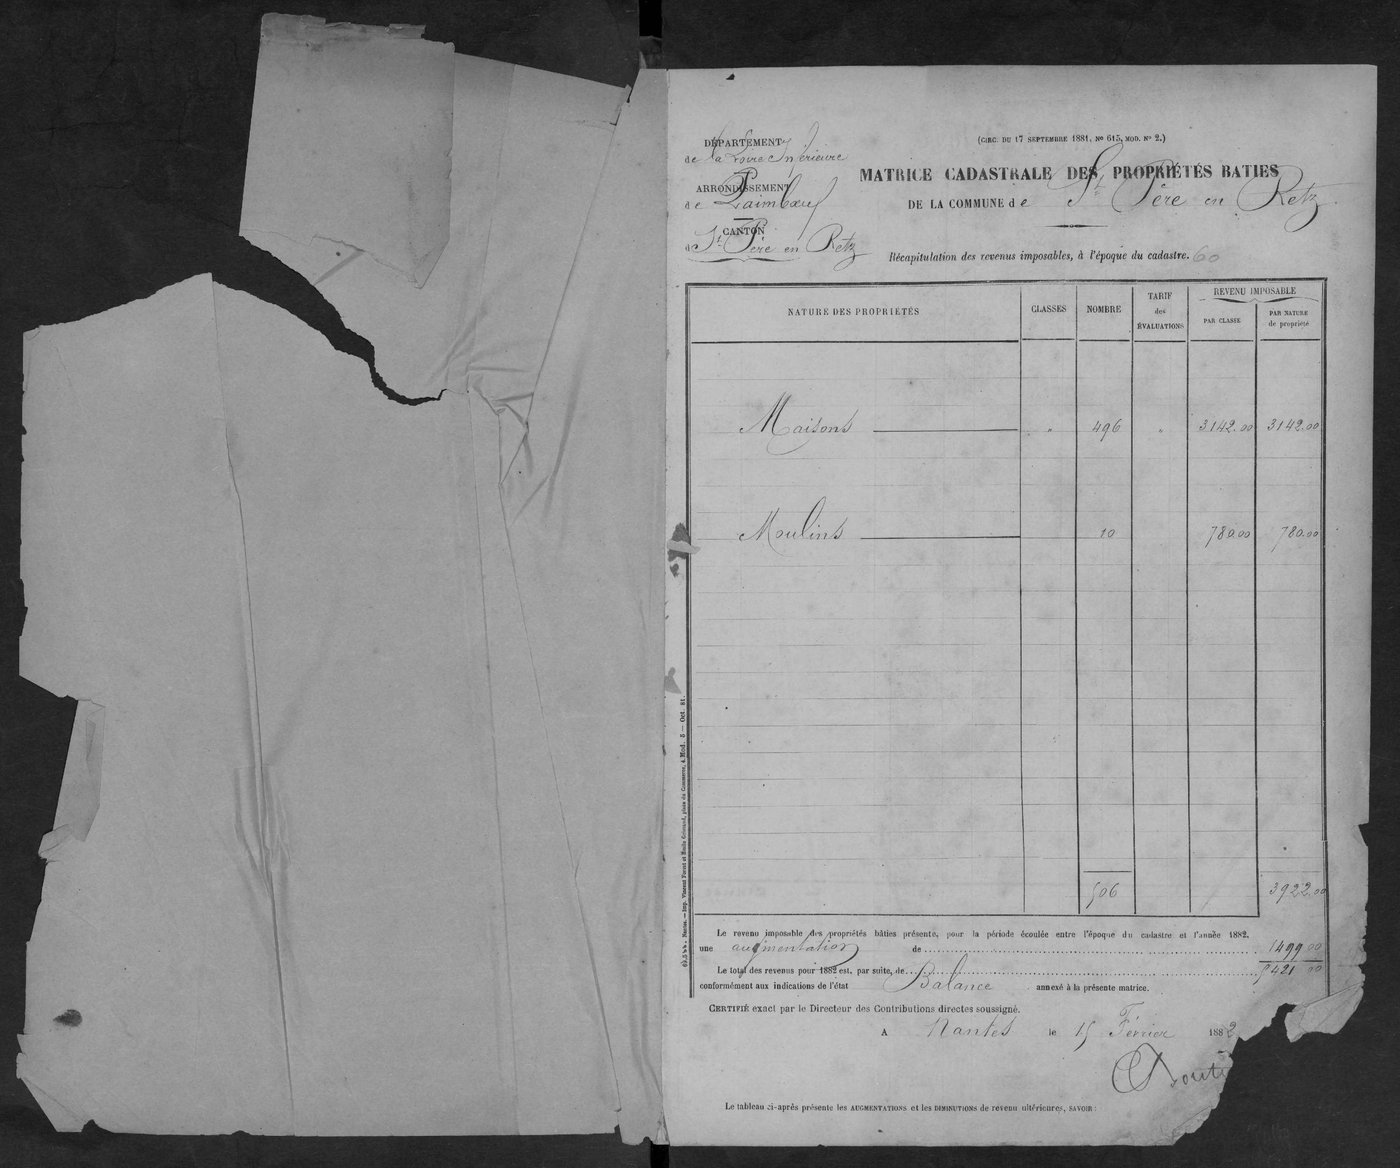 DÉPARTEMENT
de la Loire Inférieure
ARRONDISSEMENT
de Paimboeuf
CANTON
de St Père en Retz
(CIRC. DU 17 SEPTEMBRE 1881, No 615, MOD. No 2.)
MATRICE CADASTRALE DES PROPRIÉTÉS BATIES
DE LA COMMUNE de St Père en Retz
Récapitulation des revenus imposables, à l'époque du cadastre. 60
NATURE DES PROPRIÉTÉS CLASSES NOMBRE TARIF des ÉVALUATIONS REVENU IMPOSABLE PAR CLASSE PAR NATURE de propriété
Maisons " 496 " 3142.00 3142.00
Moulins 10 780.00 780.00
506 3922.00
Le revenu imposable des propriétés bâties présente, pour la période écoulée entre l'époque du cadastre et l'année 1882,
une augmentation de 1499 00
Le total des revenus pour 1882 est, par suite, de 5421 00
conformément aux indications de l'état Balance annexé à la présente matrice.
CERTIFIÉ exact par le Directeur des Contributions directes soussigné.
A Nantes le 15 Février 1882
Le tableau ci-après présente les AUGMENTATIONS et les DIMINUTIONS de revenu ultérieures, SAVOIR :
Nantes. — Imp. Vincent Forest et Émile Grimaud, place du Commerce, 4. Mod. 5 — Oct. 81.